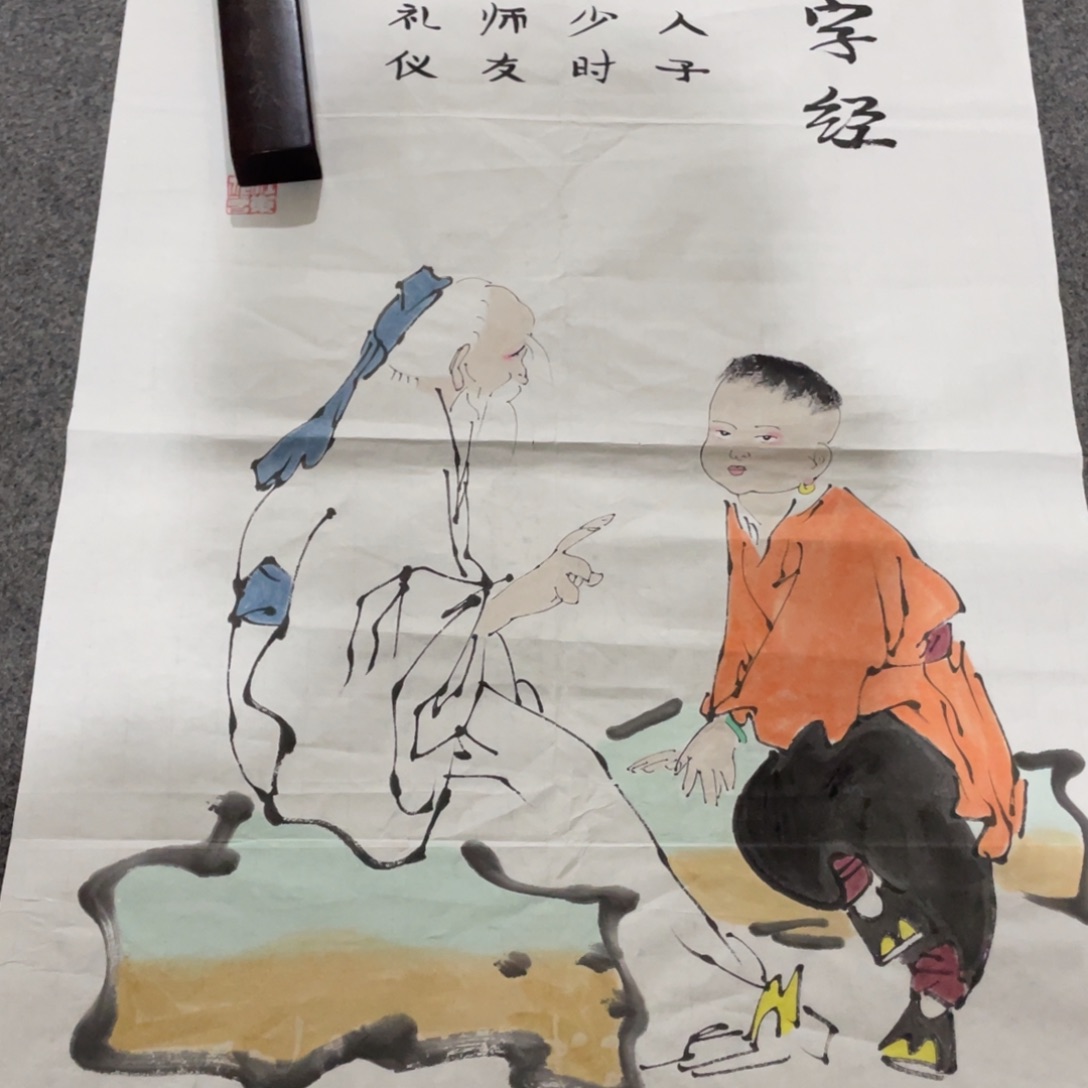 字经
人子
少时
师友
礼仪